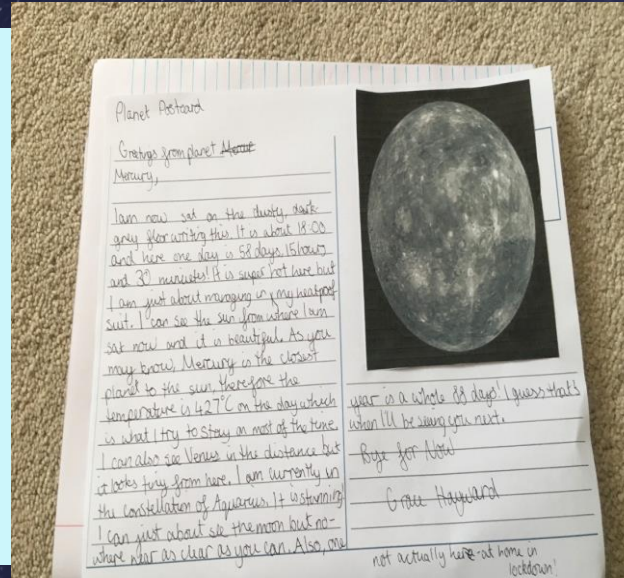 Planet Postcard
Greetings from planet
Mercury,
I am now sat on the dusty, dark
grey floor writing this. It is about 18:00
and here one day is 58 days, 15 hours
and 30 minutes! It is super hot here but
I am just about managing in my heatproof
suit. I can see the sun from where I am
sat now and it is beautiful. As you
may know, Mercury is the closest
planet to the sun, therefore the
temperature is 427°C on the day which
is what I try to stay on most of the time.
I can also see Venus in the distance but
it looks tiny from here. I am currently in
the constellation of Aquarius. It is stunning!
I can just about see the moon but no-
where near as clear as you can. Also, one
year is a whole 88 days! I guess that's
when I'll be seeing you next.
Bye for Now
Grace Hayward
not actually here - at home in
lockdown!